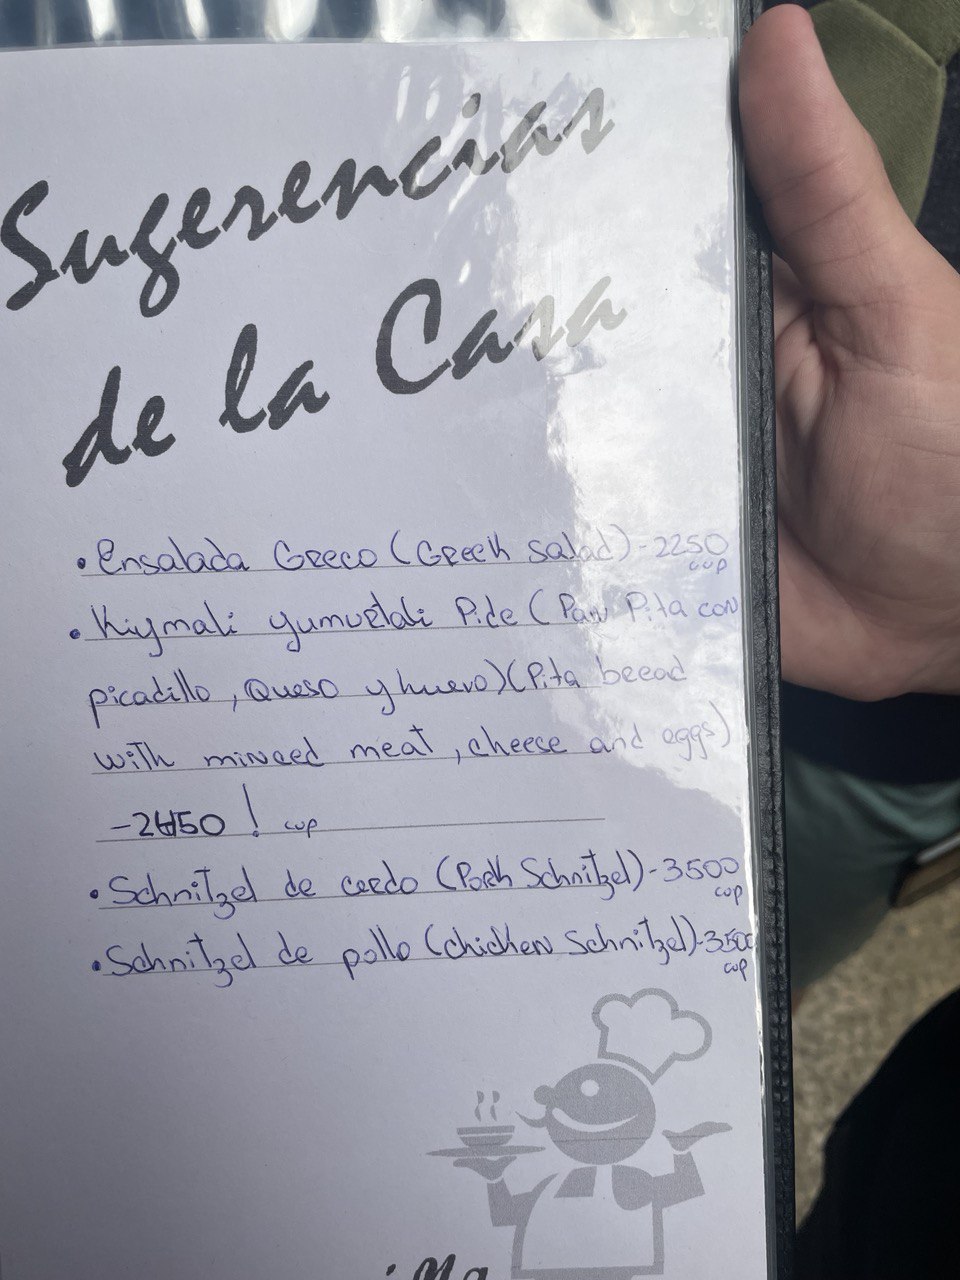 Sugerencias
de la Casa
• Ensalada Greco (Greek salad) - 2250
cup
• Kiymali yumurtali Pide (Pan Pita con
picadillo, Queso y huevo) (Pita bread
with minced meat, cheese and eggs)
- 2450! cup
• Schnitzel de cerdo (Pork Schnitzel) - 3500
cup
• Schnitzel de pollo (Chicken Schnitzel) - 3500
cup